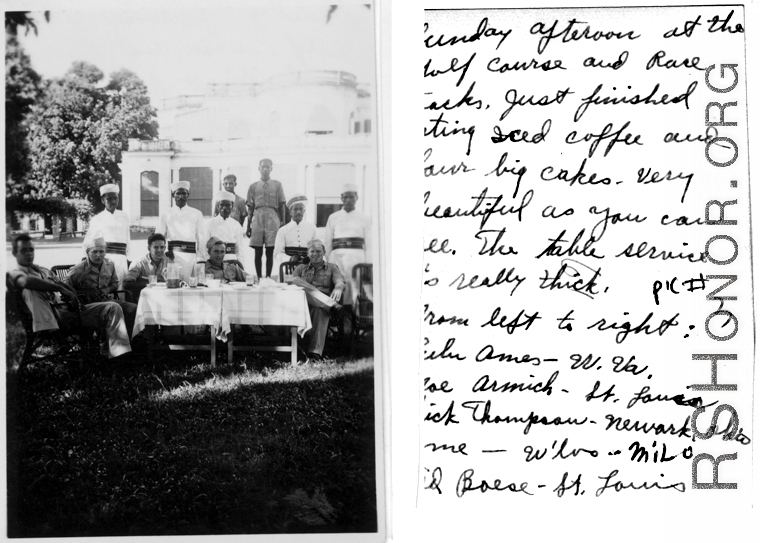 unday afteroon at the
olf course and Race
acks. Just finished
ting iced coffee and
our big cakes - Very
eautiful as you can
ee. The table service
s really thick. pic #
rom left to right:
Ames - W. Va.
oe Armich - St. Louis
ick Thompson - Newark, Ohio
me - W'lvo - MILO
d Boese - St. Louis
RSHONOR.ORG